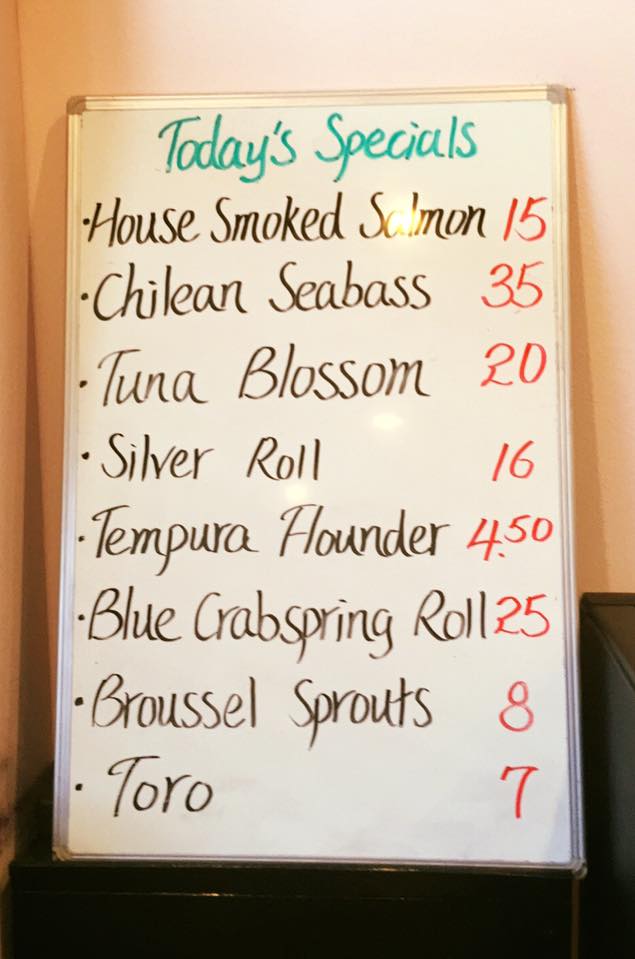 Today's Specials
·House Smoked Salmon 15
·Chilean Seabass 35
·Tuna Blossom 20
·Silver Roll 16
·Tempura Flounder 4.50
·Blue Crabspring Roll 25
·Broussel Sprouts 8
·Toro 7